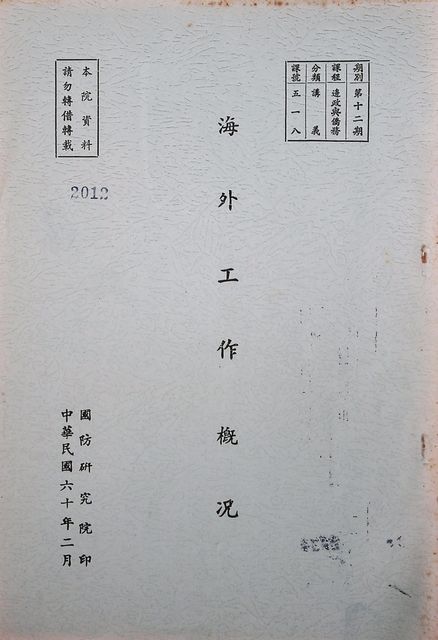 期別 第十二期
課程 邊政與僑務
分類 講義
課號 五一八
海外工作概況
本院資料
請勿轉借轉載
2012
國防研究院印
中華民國六十年二月